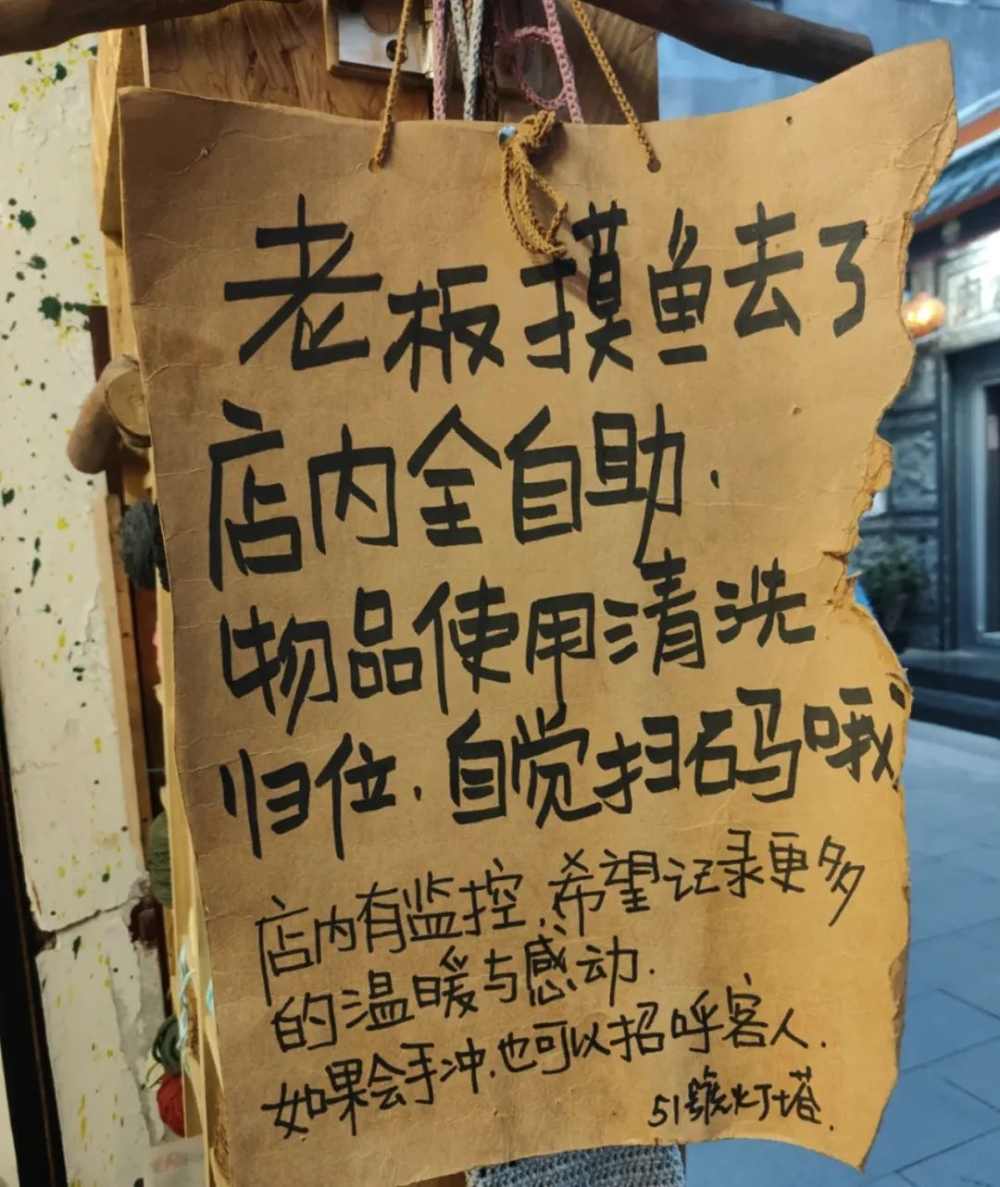 老板摸鱼去了
店内全自助.
物品使用清洗
归位.自觉扫码哦
店内有监控,希望记录更多
的温暖与感动.
如果会手冲,也可以招呼客人.
51號灯塔.